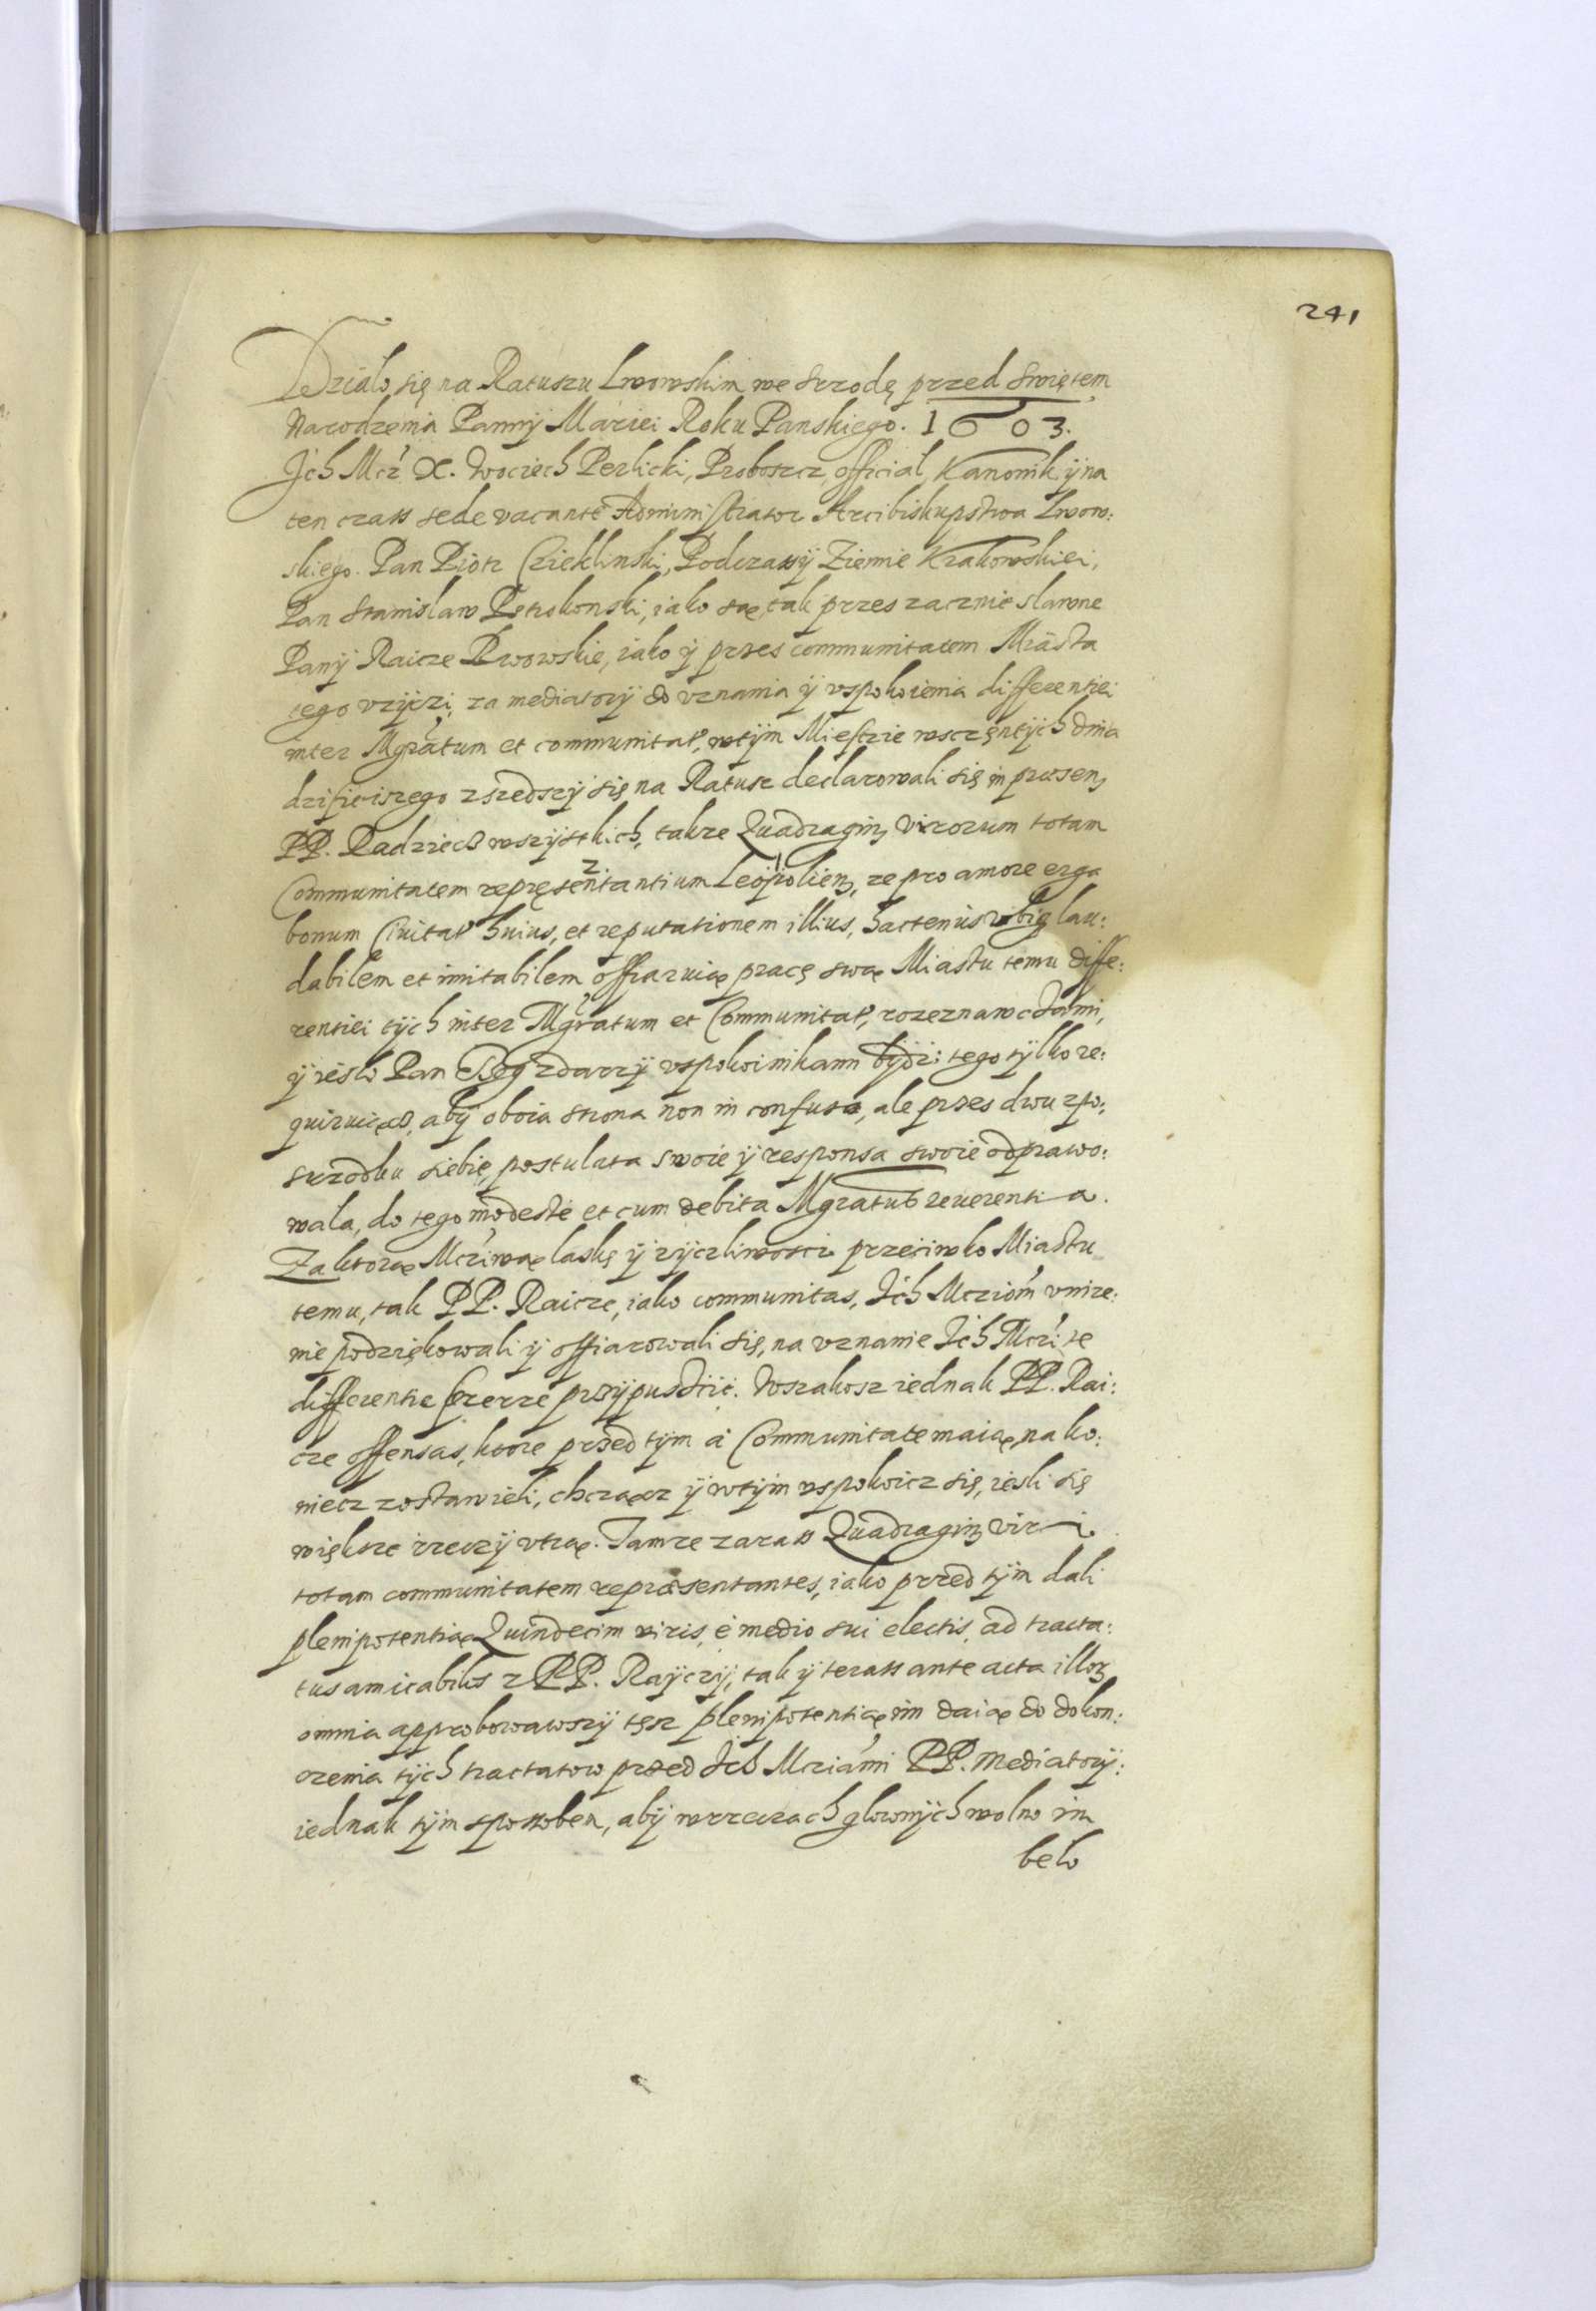 241
Działo się na Ratuszu Lwowskim we srzodę przed swiętem
Narodzenia Panny Mariei Roku Panskiego. 1603.
Jch Mcz X. Wociech Perlicki, Proboszcz, official, Kanonik ÿ na
ten czass sede vacante Administrator Arcibiskupstwa Lwow:
skiego. Pan Piotr Czieklinski, Podczassÿ Ziemie Krakowskiei,
Pan Stanislaw Pstrokonski, iako są tak przes zacznie slawne
Panÿ Raicze Lwowskie, iako ÿ przes communitatem Miasta
tego vzÿczi, za mediatorÿ do vznania ÿ vspokoienia differentiei
inter Mgratum et communitat, wtÿm Miesczie wsczętÿch dnia
dzisieiszego zszedszÿ się na Ratusz declarowali się in praesen
PP. Radziecz wszÿstkich, takze Quadragin virorum totam
Communitatem repręsentantium Leopolien, ze pro amore erga
bonum Ciuitat huius, et reputationem illius, hactenus vbiq lau:
dabilem et imitabilem offiaruią pracę swą Miastu temu diffe:
rentiei tÿch inter Mgratum et Communitat, rozeznawcżami,
ÿ iesli Pan Bog zdarzÿ vspokoinikami bÿdz: tego tÿlko re:
quiruiącz, abÿ oboia strona non in confuso, ale przes dwu zpo:
srzodku siebie, postulata swoie ÿ responsa swoie odprawo:
wala, do tego modeste et cum debita Mgratus reuerentia.
Za ktorą Mcziwą laskę ÿ zÿczliwosci przeciwko Miastu
temu, tak PP. Raicze, iako communitas, Jch Mcziom vnize:
nie podziękowali ÿ offiarowali się, na vznanie Jch Mcz te
differentie sczerze przÿpuscic. Wszakosz iednak PP. Rai:
cze offensas, ktore przed tÿm à Communitate maią, na ko:
niecz zostawieli, chczącz ÿ wtÿm vspokoicz się, iesli się
większe rzeczÿ vtrą. Tamze zarass Quadragin viri
totam communitatem repraesentantes, iako przed tÿm dali
plenipotentią Quindecim viris, è medio sui electis, ad tracta:
tus amicabiles z PP. Raÿczÿ, tak ÿ terass ante acta illor
omnia approbowawszÿ tęsz plenipotentią im daią do dokon:
czenia tÿch tractatow przed Jch Mcziami PP. Mediatorÿ:
iednak tÿm sposobem, abÿ wrzeczach glownÿch wolno im
belo